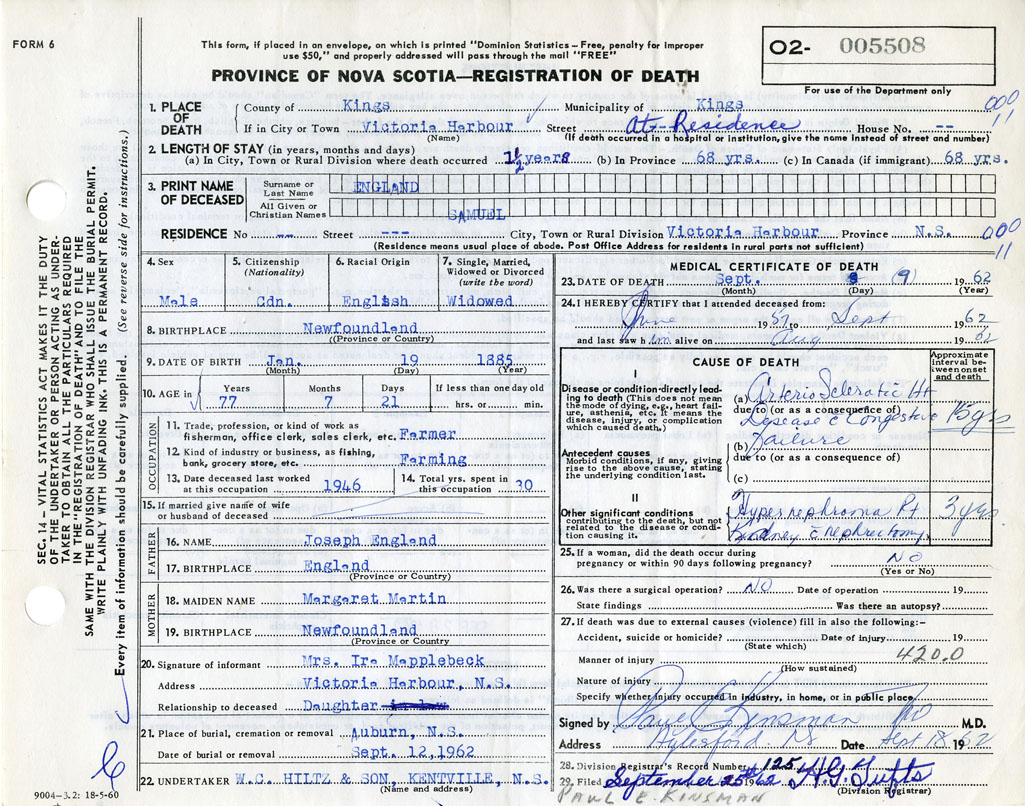 FORM 6
This form, if placed in an envelope, on which is printed "Dominion Statistics – Free, penalty for improper
use $50," and properly addressed will pass through the mail "FREE"
O2- 005508
PROVINCE OF NOVA SCOTIA—REGISTRATION OF DEATH
For use of the Department only
1. PLACE OF DEATH
County of Kings Municipality of Kings
000
11
If in City or Town Victoria Harbour Street At Residence House No. --
(Name) (If death occurred in a hospital or institution, give the name instead of street and number)
2. LENGTH OF STAY (in years, months and days)
(a) In City, Town or Rural Division where death occurred 1½ years (b) In Province 68 yrs. (c) In Canada (if immigrant) 68 yrs.
3. PRINT NAME OF DECEASED
Surname or Last Name ENGLAND
All Given or Christian Names SAMUEL
RESIDENCE No -- Street --- City, Town or Rural Division Victoria Harbour Province N.S.
000
11
(Residence means usual place of abode. Post Office Address for residents in rural parts not sufficient)
4. Sex
Male
5. Citizenship
(Nationality)
Cdn.
6. Racial Origin
English
7. Single, Married,
Widowed or Divorced
(write the word)
Widowed
8. BIRTHPLACE Newfoundland
((Province or Country)
9. DATE OF BIRTH Jan. 19 1885
(Month) (Day) (Year)
10. AGE in
Years Months Days If less than one day old
77 7 21 hrs. or min.
OCCUPATION
11. Trade, profession, or kind of work as
fisherman, office clerk, sales clerk, etc. Farmer
12. Kind of industry or business, as fishing,
bank, grocery store, etc. Farming
13. Date deceased last worked
at this occupation 1946
14. Total yrs. spent in
this occupation 30
15. If married give name of wife
or husband of deceased
FATHER
16. NAME Joseph England
17. BIRTHPLACE England
(Province or Country)
MOTHER
18. MAIDEN NAME Margaret Martin
19. BIRTHPLACE Newfoundland
(Province or Country
20. Signature of informant Mrs. Ira Mapplebeck
Address Victoria Harbour, N.S.
Relationship to deceased Daughter in law
21. Place of burial, cremation or removal Auburn, N.S.
Date of burial or removal Sept. 12,1962
22. UNDERTAKER W.C. HILTZ & SON, KENTVILLE, N.S.
(Name and address)
MEDICAL CERTIFICATE OF DEATH
23. DATE OF DEATH Sept. (9) 1962
(Month) (Day) (Year)
24. I HEREBY CERTIFY that I attended deceased from:
June 1957 to Sept 1962
and last saw him alive on Aug 1962
CAUSE OF DEATH
Approximate
interval be-
tween onset
and death
I
Disease or condition directly lead-
ing to death (This does not mean
the mode of dying, e.g., heart fail-
ure, asthenia, etc. It means the
disease, injury, or complication
which caused death.)
(a) Arterio Sclerotic Ht
due to (or as a consequence of)
Disease c Congestive 15 yrs
(b) Failure
due to (or as a consequence of)
(c)
Antecedent causes
Morbid conditions, if any, giving
rise to the above cause, stating
the underlying condition last.
II
Other significant conditions
contributing to the death, but not
related to the disease or condi-
tion causing it.
Hypernephroma Rt
Kidney c nephrectomy
3 yrs.
25. If a woman, did the death occur during
pregnancy or within 90 days following pregnancy? NO
(Yes or No)
26. Was there a surgical operation? NO Date of operation 19
State findings Was there an autopsy?
27. If death was due to external causes (violence) fill in also the following:-
Accident, suicide or homicide? Date of injury 19
(State which)
420.0
Manner of injury
(How sustained)
Nature of injury
Specify whether injury occurred in industry, in home, or in public place
Signed by Paul E Kinsman MD M.D.
Address Aylesford NS Date Sept 18 1962
28. Division Registrar's Record Number 125
29. Filed September 25th 1962 H.G. Tufts
(Division Registrar)
PAUL E. KINSMAN
SEC. 14 — VITAL STATISTICS ACT MAKES IT THE DUTY
OF THE UNDERTAKER OR PERSON ACTING AS UNDER-
TAKER TO OBTAIN ALL THE PARTICULARS REQUIRED
IN THE "REGISTRATION OF DEATH" AND TO FILE THE
SAME WITH THE DIVISION REGISTRAR WHO SHALL ISSUE THE BURIAL PERMIT.
WRITE PLAINLY WITH UNFADING INK. THIS IS A PERMANENT RECORD.
Every item of information should be carefully supplied. (See reverse side for instructions.)
9004-3.2: 18-5-60